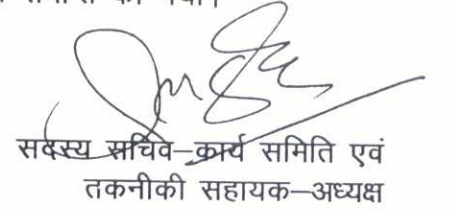 सदस्य सचिव–कार्य समिति एवं
तकनीकी सहायक–अध्यक्ष